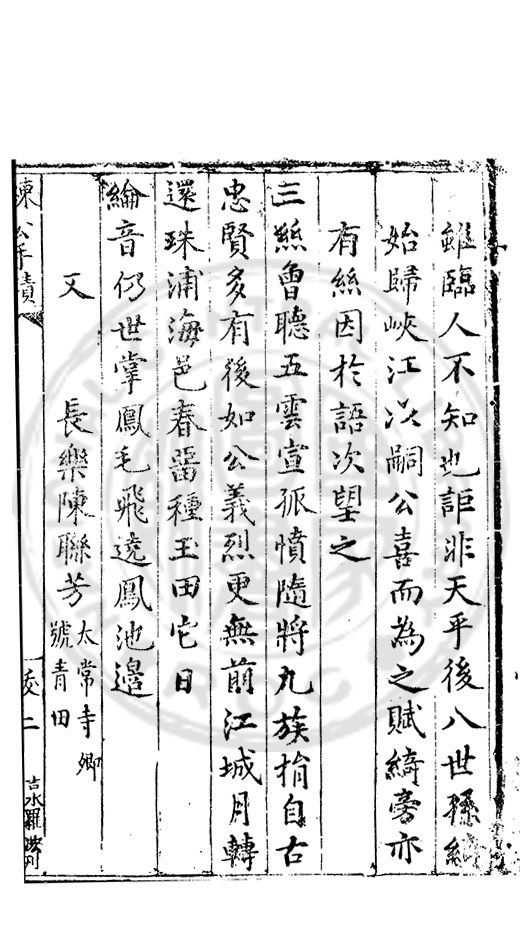 雖臨人不知也詎非天乎後八世孫
始歸峽江次嗣公喜而為之賦綺旁亦
有絲因於語次望之
三絲曾聽五雲宣孤憤隨將九族捐自古
忠賢多有後如公義烈更無前江城月轉
還珠浦海邑春畱種玉田它日
綸音仍世掌鳳毛飛遶鳳池邊
又
長樂陳聯芳太常寺卿號青田
練公手蹟
後 二
吉水羅 刊